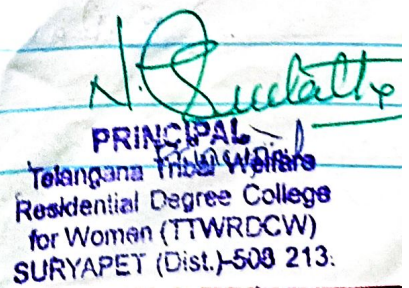 PRINCIPAL
Principal
Telangana Tribal Welfare
Residential Degree College
for Women (TTWRDCW)
SURYAPET (Dist.)-508 213.